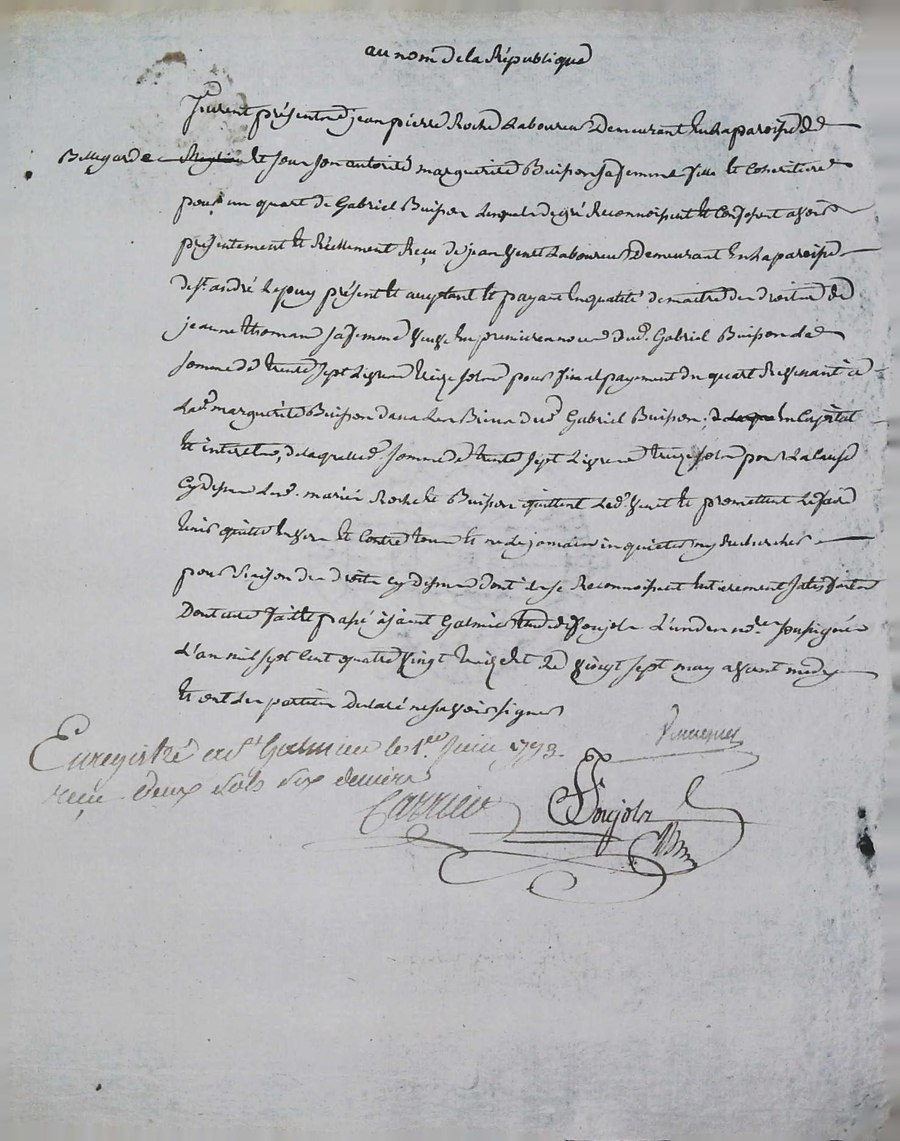 au nom de la République
Furent présents jean pierre Roche Laboureur Demeurant En la paroisse de
Bellegarde Et sous son autorité marguerite Buisson sa femme fille Et Coheritiere
pour un quart de Gabriel Buisson Lesquels de gré Reconnoissent Et Confessent avoir
présentement Et Réellement Reçu de jean Laboureur Demeurant En la paroisse
de st andré Le puy présent Et acceptant Et payant En qualité de maitre des droits de
jeanne thomas sa femme veuve En premiere noces dud. Gabriel Buisson La
somme de trente sept Livres treize sols pour final payement du quart Revenant à
Lad. marguerite Buisson dans Les Biens dud. Gabriel Buisson, En Capital
Et interets, de laquelle somme de trente sept Livres treize sols pour La Cause
Cy dessus Lesd. mariés Roche Et Buisson quittent Led. Et promettent Le faire
tenir quitte Envers Et Contre tous Et ne le jamais inquieter ny Rechercher
pour Raison des droits Cy dessus dont ils se Reconnoissent Entierement satisfaits
Dont acte fait Et passé à saint Galmier Etude de Soujols L'un des nores soussignés
L'an mil sept Cent quatre vingt treize Et Le vingt sept may avant midy
Et ont Les parties declaré ne savoir signer
Enregistré à st Galmier le 1er Juin 1793.
reçu deux sols six deniers
Carrier
Soujols